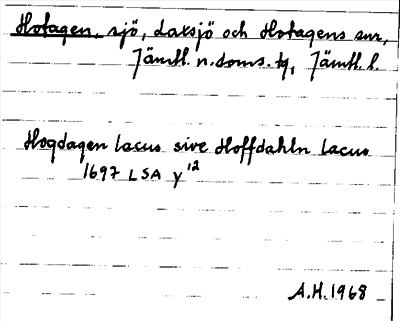 Hotagen, sjö, Laxsjö och Hotagens snr,
Jämtl. n. doms. tg, Jämtl. l.
Hogdagen lacus sive Hoffdahln lacus
1697 LSA y12
A.H. 1968